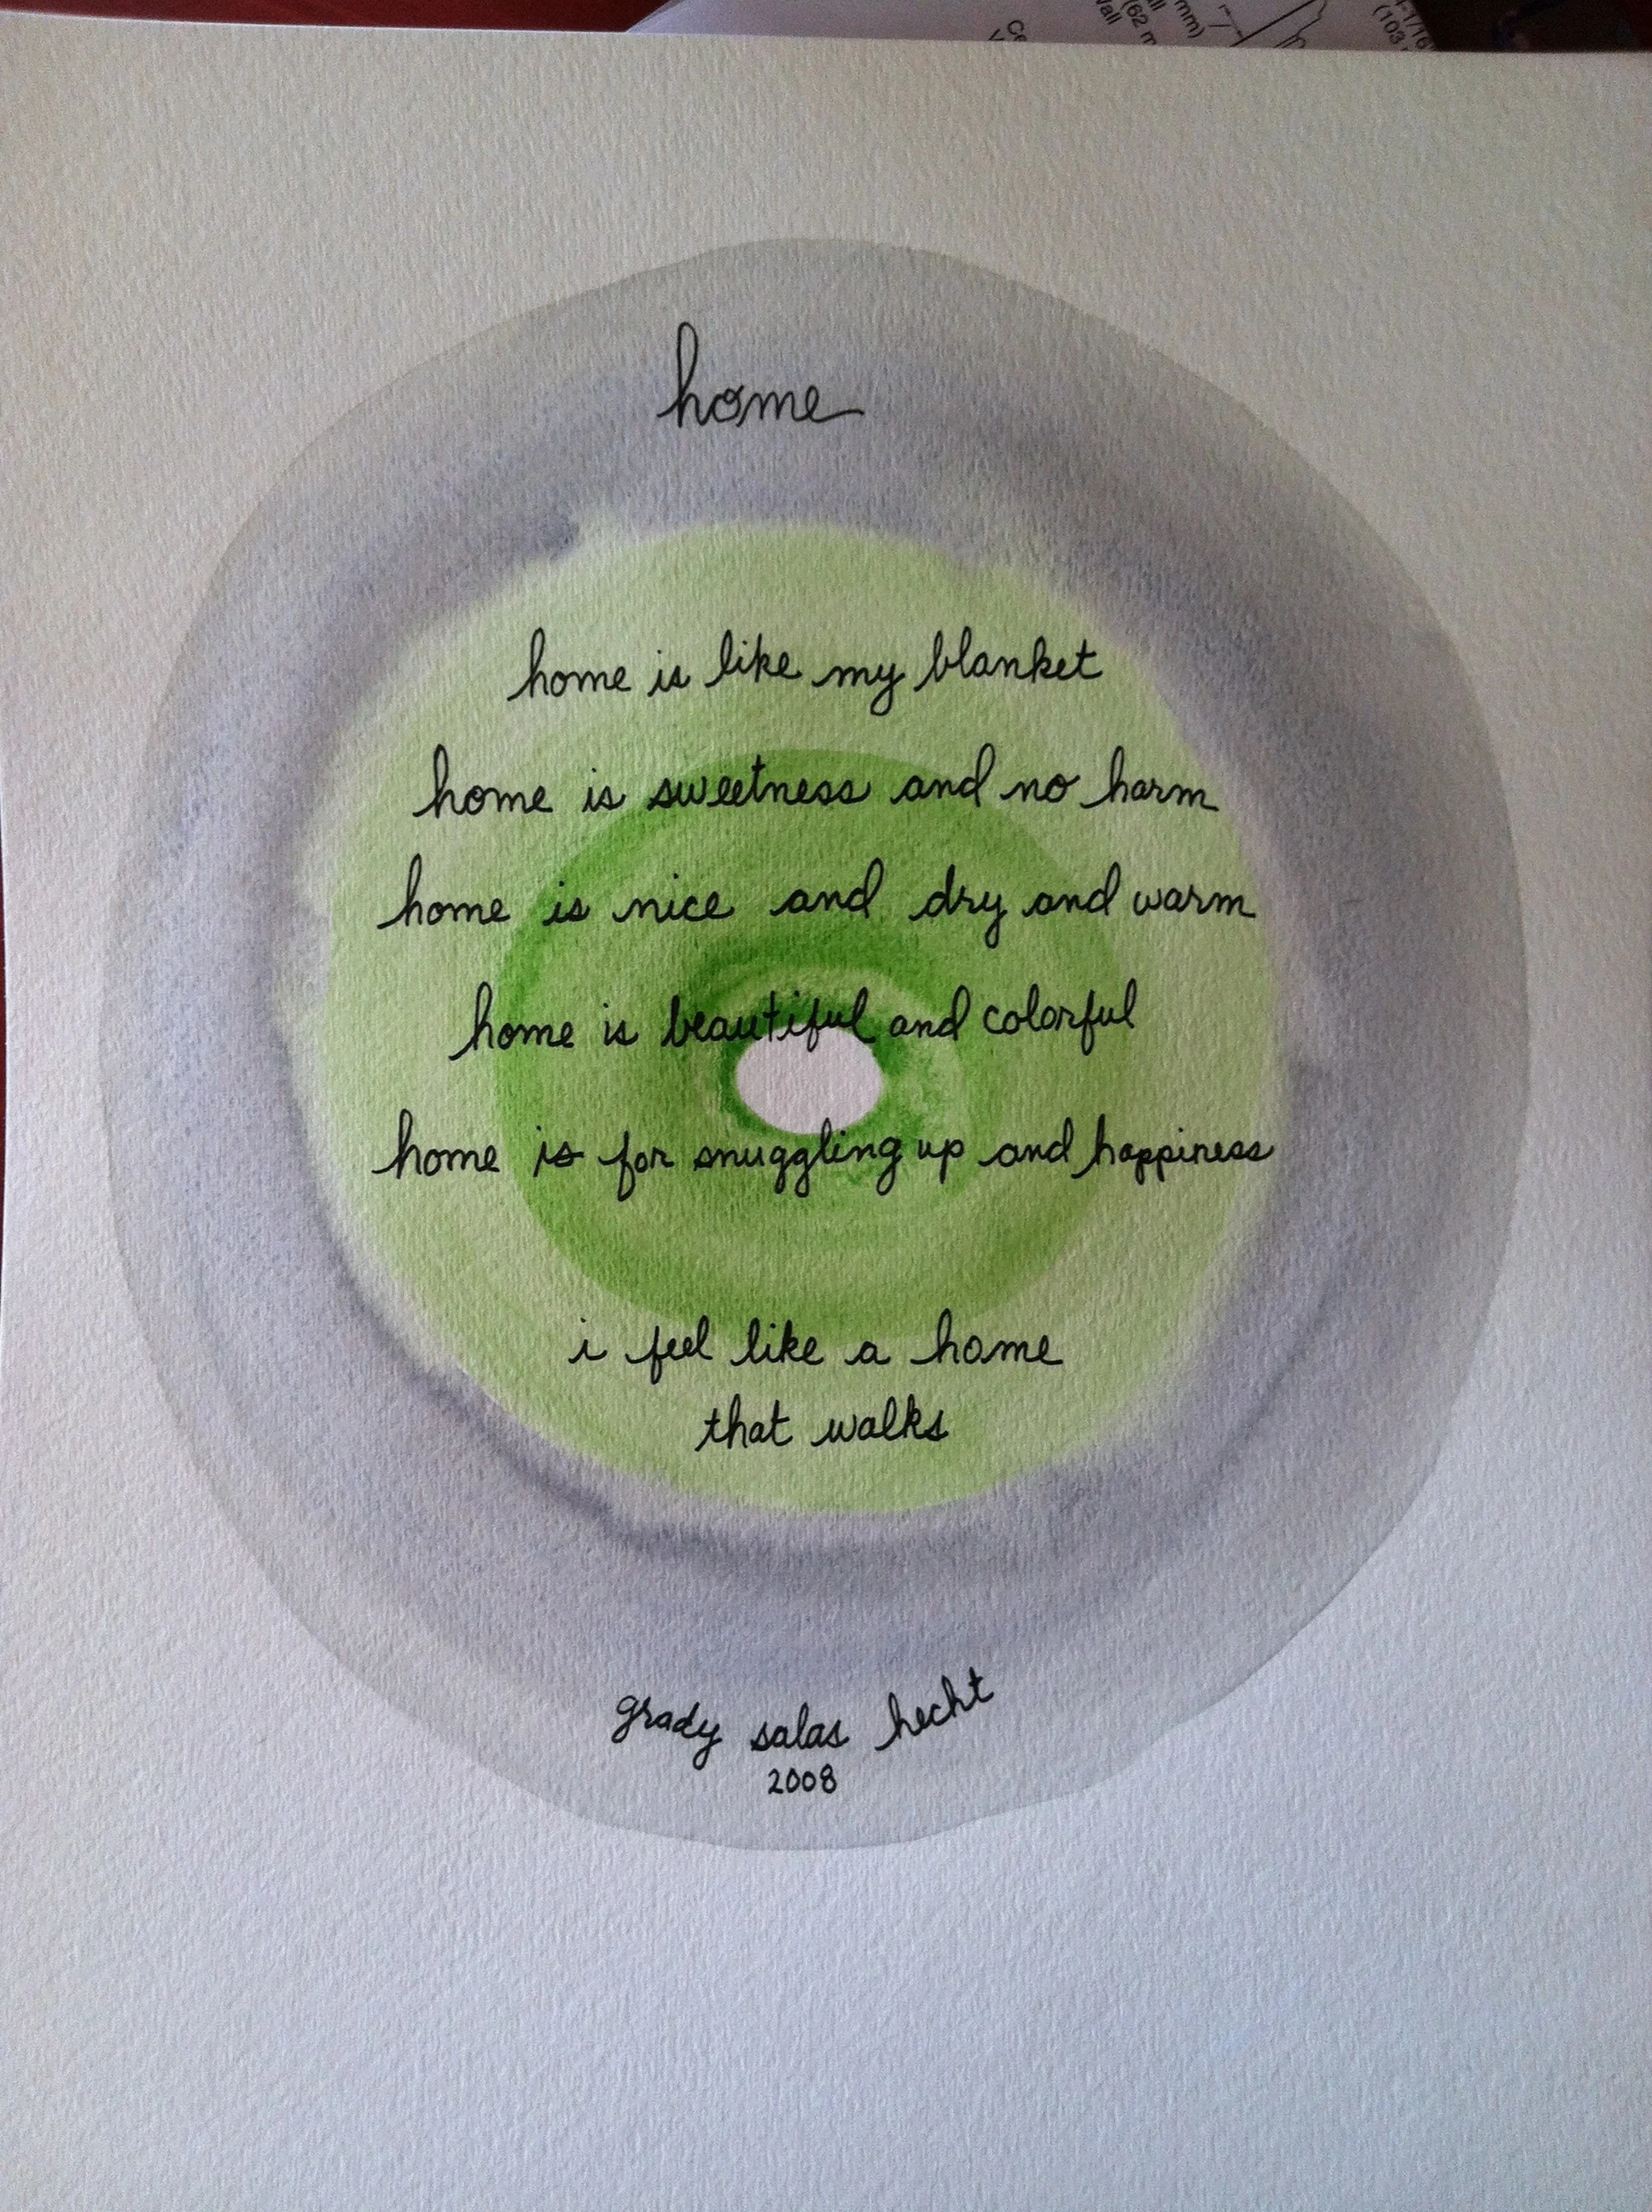 home
home is like my blanket
home is sweetness and no harm
home is nice and dry and warm
home is beautiful and colorful
home is for snuggling up and happiness
i feel like a home
that walks
grady salas hecht
2008